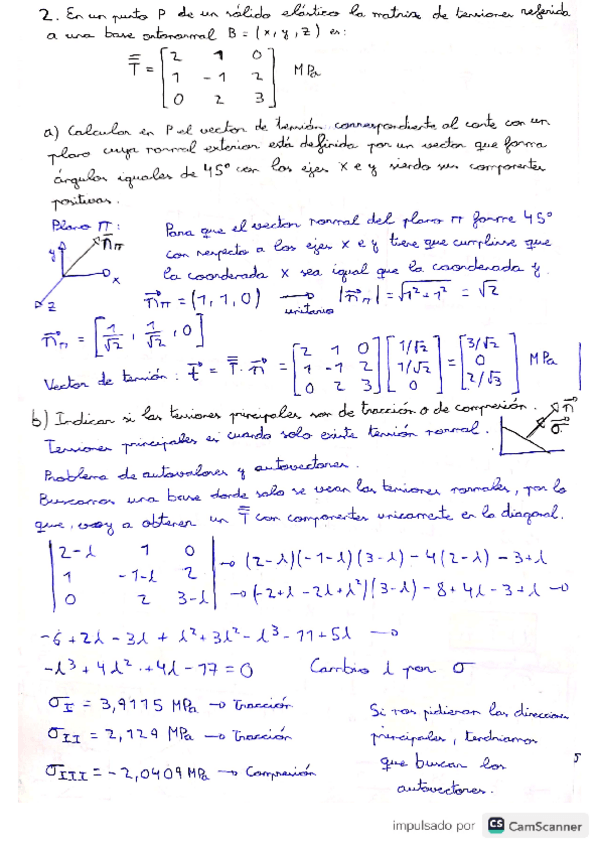 2. En un punto P de un sólido elástico la matriz de tensiones referida
a una base ortonormal B = (x, y, z) es:
T = [2 1 0
1 -1 2
0 2 3] MPa
a) Calcular en P el vector de tensión correspondiente al corte con un
plano cuya normal exterior está definida por un vector que forma
ángulos iguales de 45° con los ejes x e y siendo sus componentes
positivas.
Plano π:
y n π
x
z
Para que el vector normal del plano π forme 45°
con respecto a los ejes x e y tiene que cumplirse que
la coordenada x sea igual que la coordenada y.
nπ = (1, 1, 0) → unitario |nπ| = √1²+1² = √2
nπ = [1/√2, 1/√2, 0]
Vector de tensión: t = T · n = [2 1 0
1 -1 2
0 2 3] [1/√2
1/√2
0] = [3/√2
0
2/√3] MPa
b) Indicar si las tensiones principales son de tracción o de compresión.
n
σ
Tensiones principales es cuando solo existe tensión normal.
Problema de autovalores y autovectores.
Buscamos una base donde solo se vean las tensiones normales, por lo
que, voy a obtener un T con componentes unicamente en la diagonal.
|2-λ 1 0
1 -1-λ 2
0 2 3-λ| → (2-λ)(-1-λ)(3-λ) - 4(2-λ) - 3+λ
→ (-2+λ-2λ+λ²)(3-λ) - 8+4λ-3+λ →
-6+2λ-3λ+λ²+3λ²-λ³-11+5λ →
-λ³+4λ²+4λ-17=0 Cambio λ por σ
σI = 3,9115 MPa → Tracción
σII = 2,129 MPa → Tracción
σIII = -2,0409 MPa → Compresión
Si nos pidieran las direcciones
principales, tendriamos
que buscar los
autovectores.
impulsado por CS CamScanner